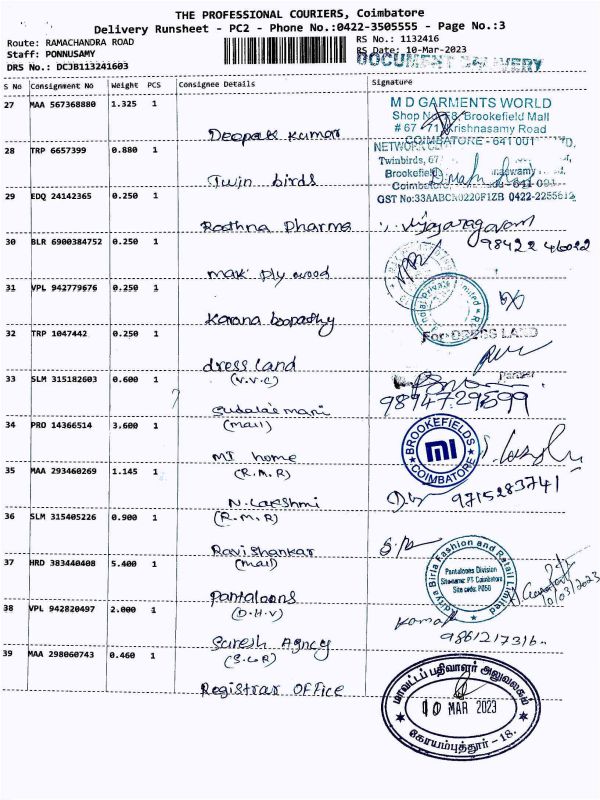 THE PROFESSIONAL COURIERS, Coimbatore
Delivery Runsheet - PC2 - Phone No.:0422-3505555 - Page No.:3
Route: RAMACHANDRA ROAD
RS No.: 1132416
Staff: PONNUSAMY
RS Date: 10-Mar-2023
DRS No.: DCJB113241603
DOCUMENT DELIVERY
S No Consignment No Weight PCS Consignee Details Signature
27 MAA 567368880 1.325 1
Deepak kumar
M D GARMENTS WORLD
Brookefield Mall
Krishnasamy Road
COIMBATORE - 641 001
28 TRP 6657399 0.880 1
Twin birds
Twinbirds, 67
Brookefield
GST No:33AABCN0220F1ZB 0422-2255612
29 EDQ 24142365 0.250 1
Rathna Pharma
Vijayaragavan
98422 46022
30 BLR 6900384752 0.250 1
mak ply wood
31 VPL 942779676 0.250 1
Karana boopathy
32 TRP 1047442 0.250 1
dress land
(V.V.C)
For DRESS LAND
Partner
33 SLM 315182603 0.600 1
Sudalaimani
(mail)
9894729599
34 PRO 14366514 3.600 1
MI home
(R.M.R)
BROOKEFIELDS
MI
COIMBATORE
35 MAA 293460269 1.145 1
N. Lakshmi
(R.M.R)
9715283741
36 SLM 315405226 0.900 1
Ravishankar
(mail)
37 HRD 383440408 5.400 1
Pantaloons
(D.H.V)
Aditya Birla Fashion and Retail Limited
Pantaloons Division
Site name: PT Coimbatore
Site code: P050
10/03/2023
38 VPL 942820497 2.000 1
Suresh Agncy
(S.C.R)
9861217316
39 MAA 298060743 0.460 1
Registrar OFFice
மாவட்டப் பதிவாளர் அலுவலகம்
10 MAR 2023
கோயம்புத்தூர் - 18.